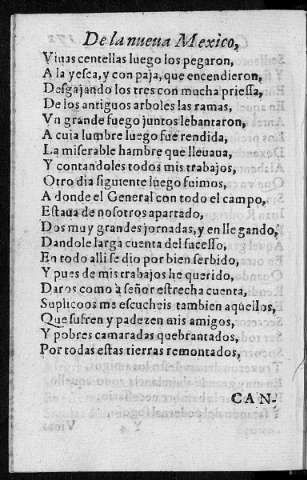 De la nueua Mexico,
Viuas centellas luego los pegaron,
A la yesca, y con paja, que encendieron,
Desgajando los tres con mucha priessa,
De los antiguos arboles las ramas,
Vn grande fuego juntos lebantaron,
A cuia lumbre luego fue rendida,
La miserable hambre que lleuaua,
Y contandoles todos mis trabajos,
Otro dia siguiente luego fuimos,
A donde el General con todo el campo,
Estaua de nosotros apartado,
Dos muy grandes jornadas, y en llegando,
Dandole larga cuenta del sucesso,
En todo alli se dio por bien serbido,
Y pues de mis trabajos he querido,
Daros como à señor estrecha cuenta,
Suplicoos me escucheis tambien aquellos,
Que sufren y padezen mis amigos,
Y pobres camaradas quebrantados,
Por todas estas tierras remontados,
CAN-